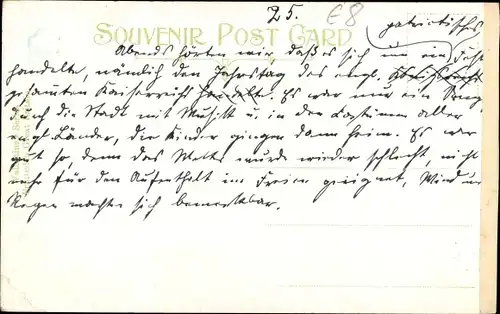 25.
E8
patriotisches
SOUVENIR POST CARD
Abends hörten wir, daß es sich um ein Fest
handelte, nämlich den Jahrstag des engl.
gesamten Kaiserreichs handelte. Es war nur ein
durch die Stadt mit Musik u. in den Costümen aller
engl. Länder, die Kinder gingen dann heim. Es war
gut so, denn das Wetter wurde wieder schlecht, nicht
mehr für den Aufenthalt im Freien geeignet, Wind u.
Regen machten sich bemerkbar.